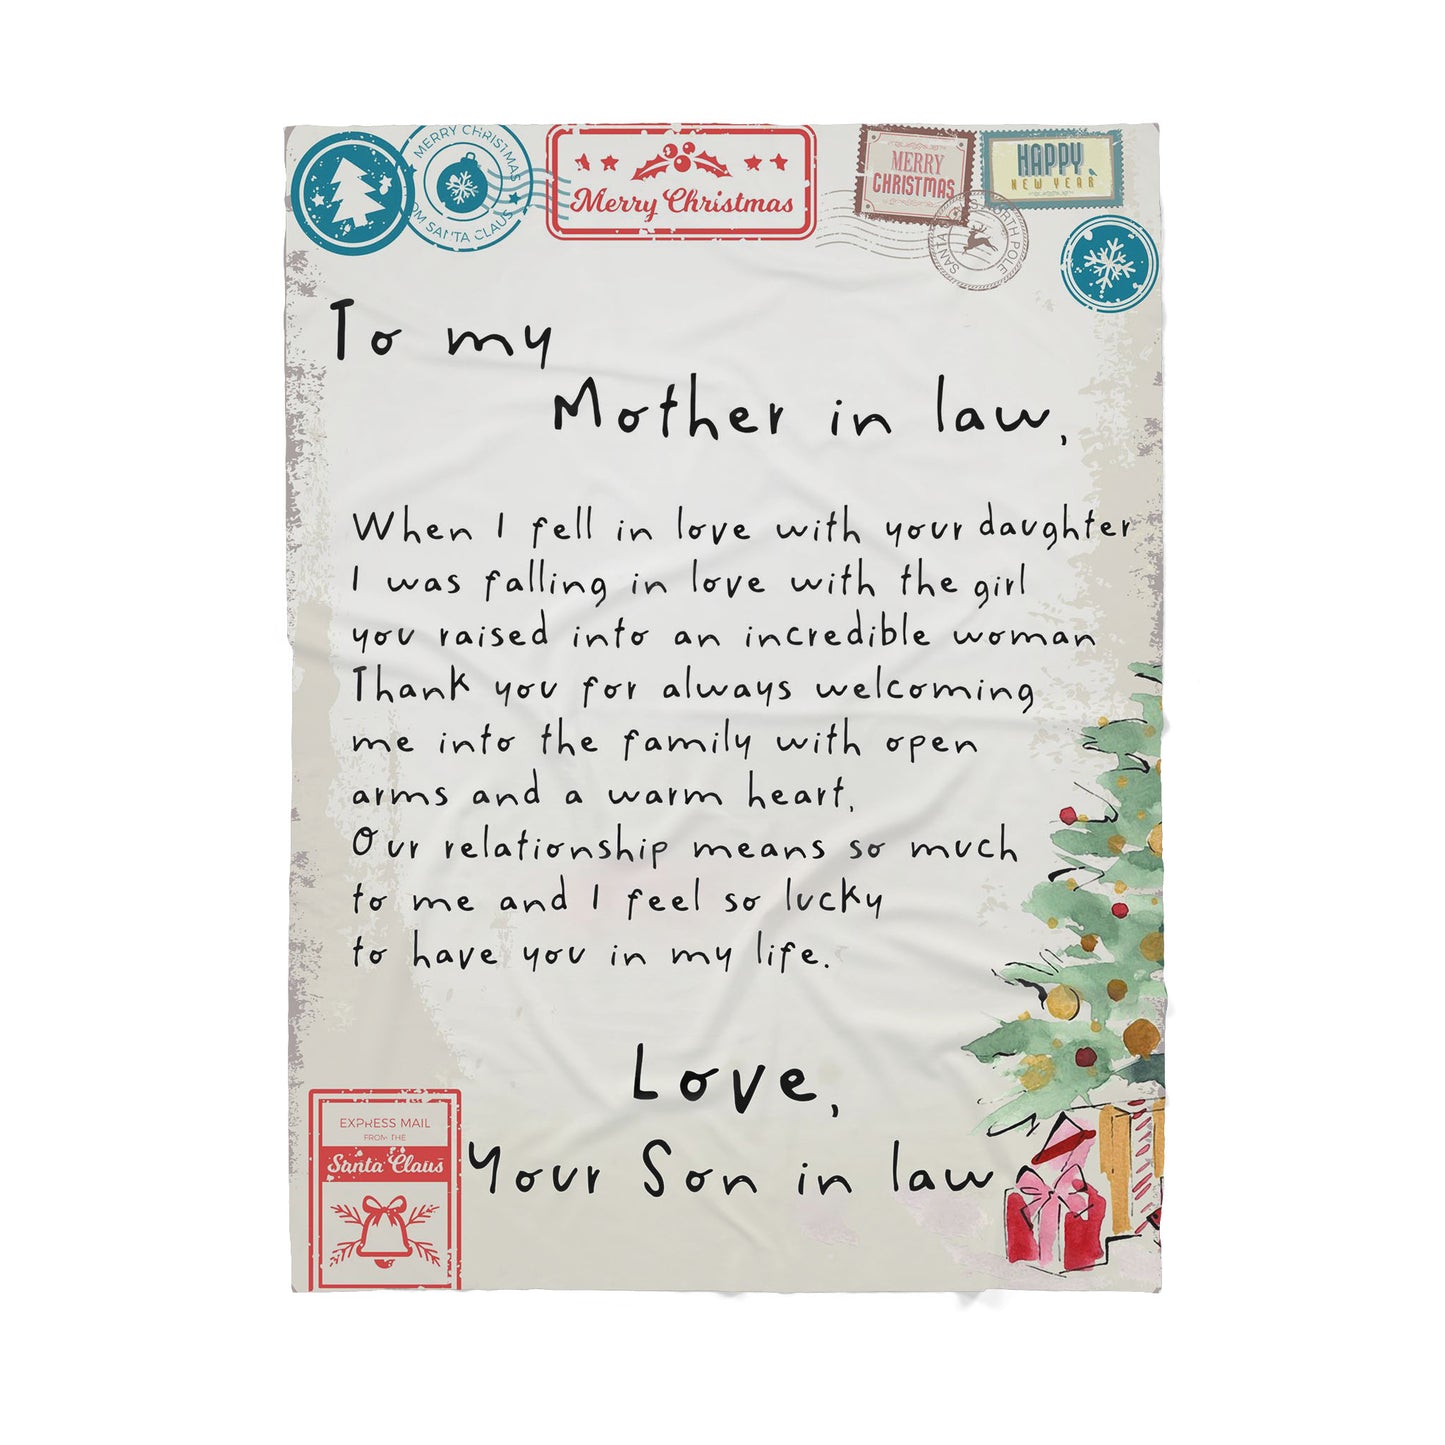 MERRY CHRISTMAS
OM SANTA CLAUS
Merry Christmas
MERRY
CHRISTMAS
HAPPY
NEW YEAR
SANTA
NORTH POLE
To my
Mother in law,
When I fell in love with your daughter
I was falling in love with the girl
you raised into an incredible woman
Thank you for always welcoming
me into the family with open
arms and a warm heart,
Our relationship means so much
to me and I feel so lucky
to have you in my life.
Love,
Your Son in law
EXPRESS MAIL
FROM THE
Santa Claus